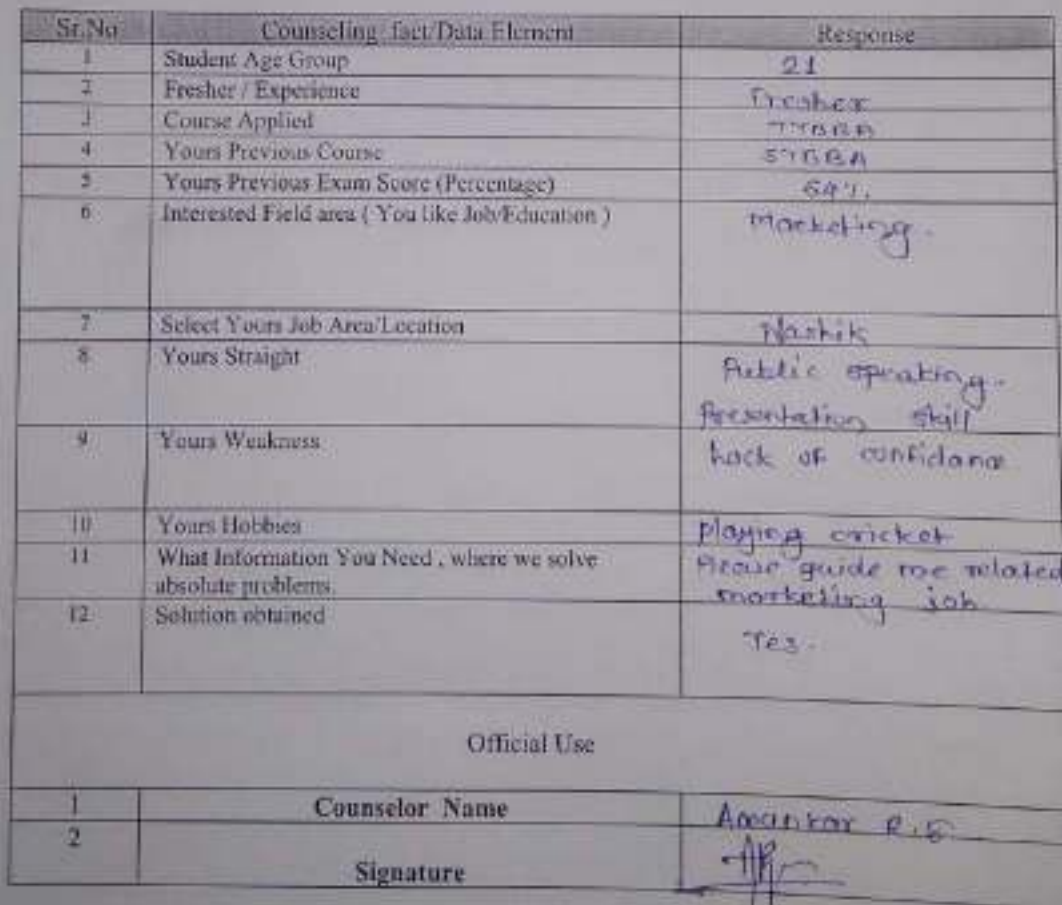 Sr.No Counseling fact/Data Element Response
1 Student Age Group 21
2 Fresher / Experience Fresher
3 Course Applied TYBBA
4 Yours Previous Course SYBBA
5 Yours Previous Exam Score (Percentage) 64%.
6 Interested Field area ( You like Job/Education ) Marketing.
7 Select Yours Job Area/Location Nashik
8 Yours Straight Public speaking.
Presentation skill
9 Yours Weakness Lack of confidance
10 Yours Hobbies playing cricket
11 What Information You Need , where we solve Please guide me related
absolute problems. marketing job
12 Solution obtained Yes.
Official Use
1 Counselor Name R.S
2
Signature